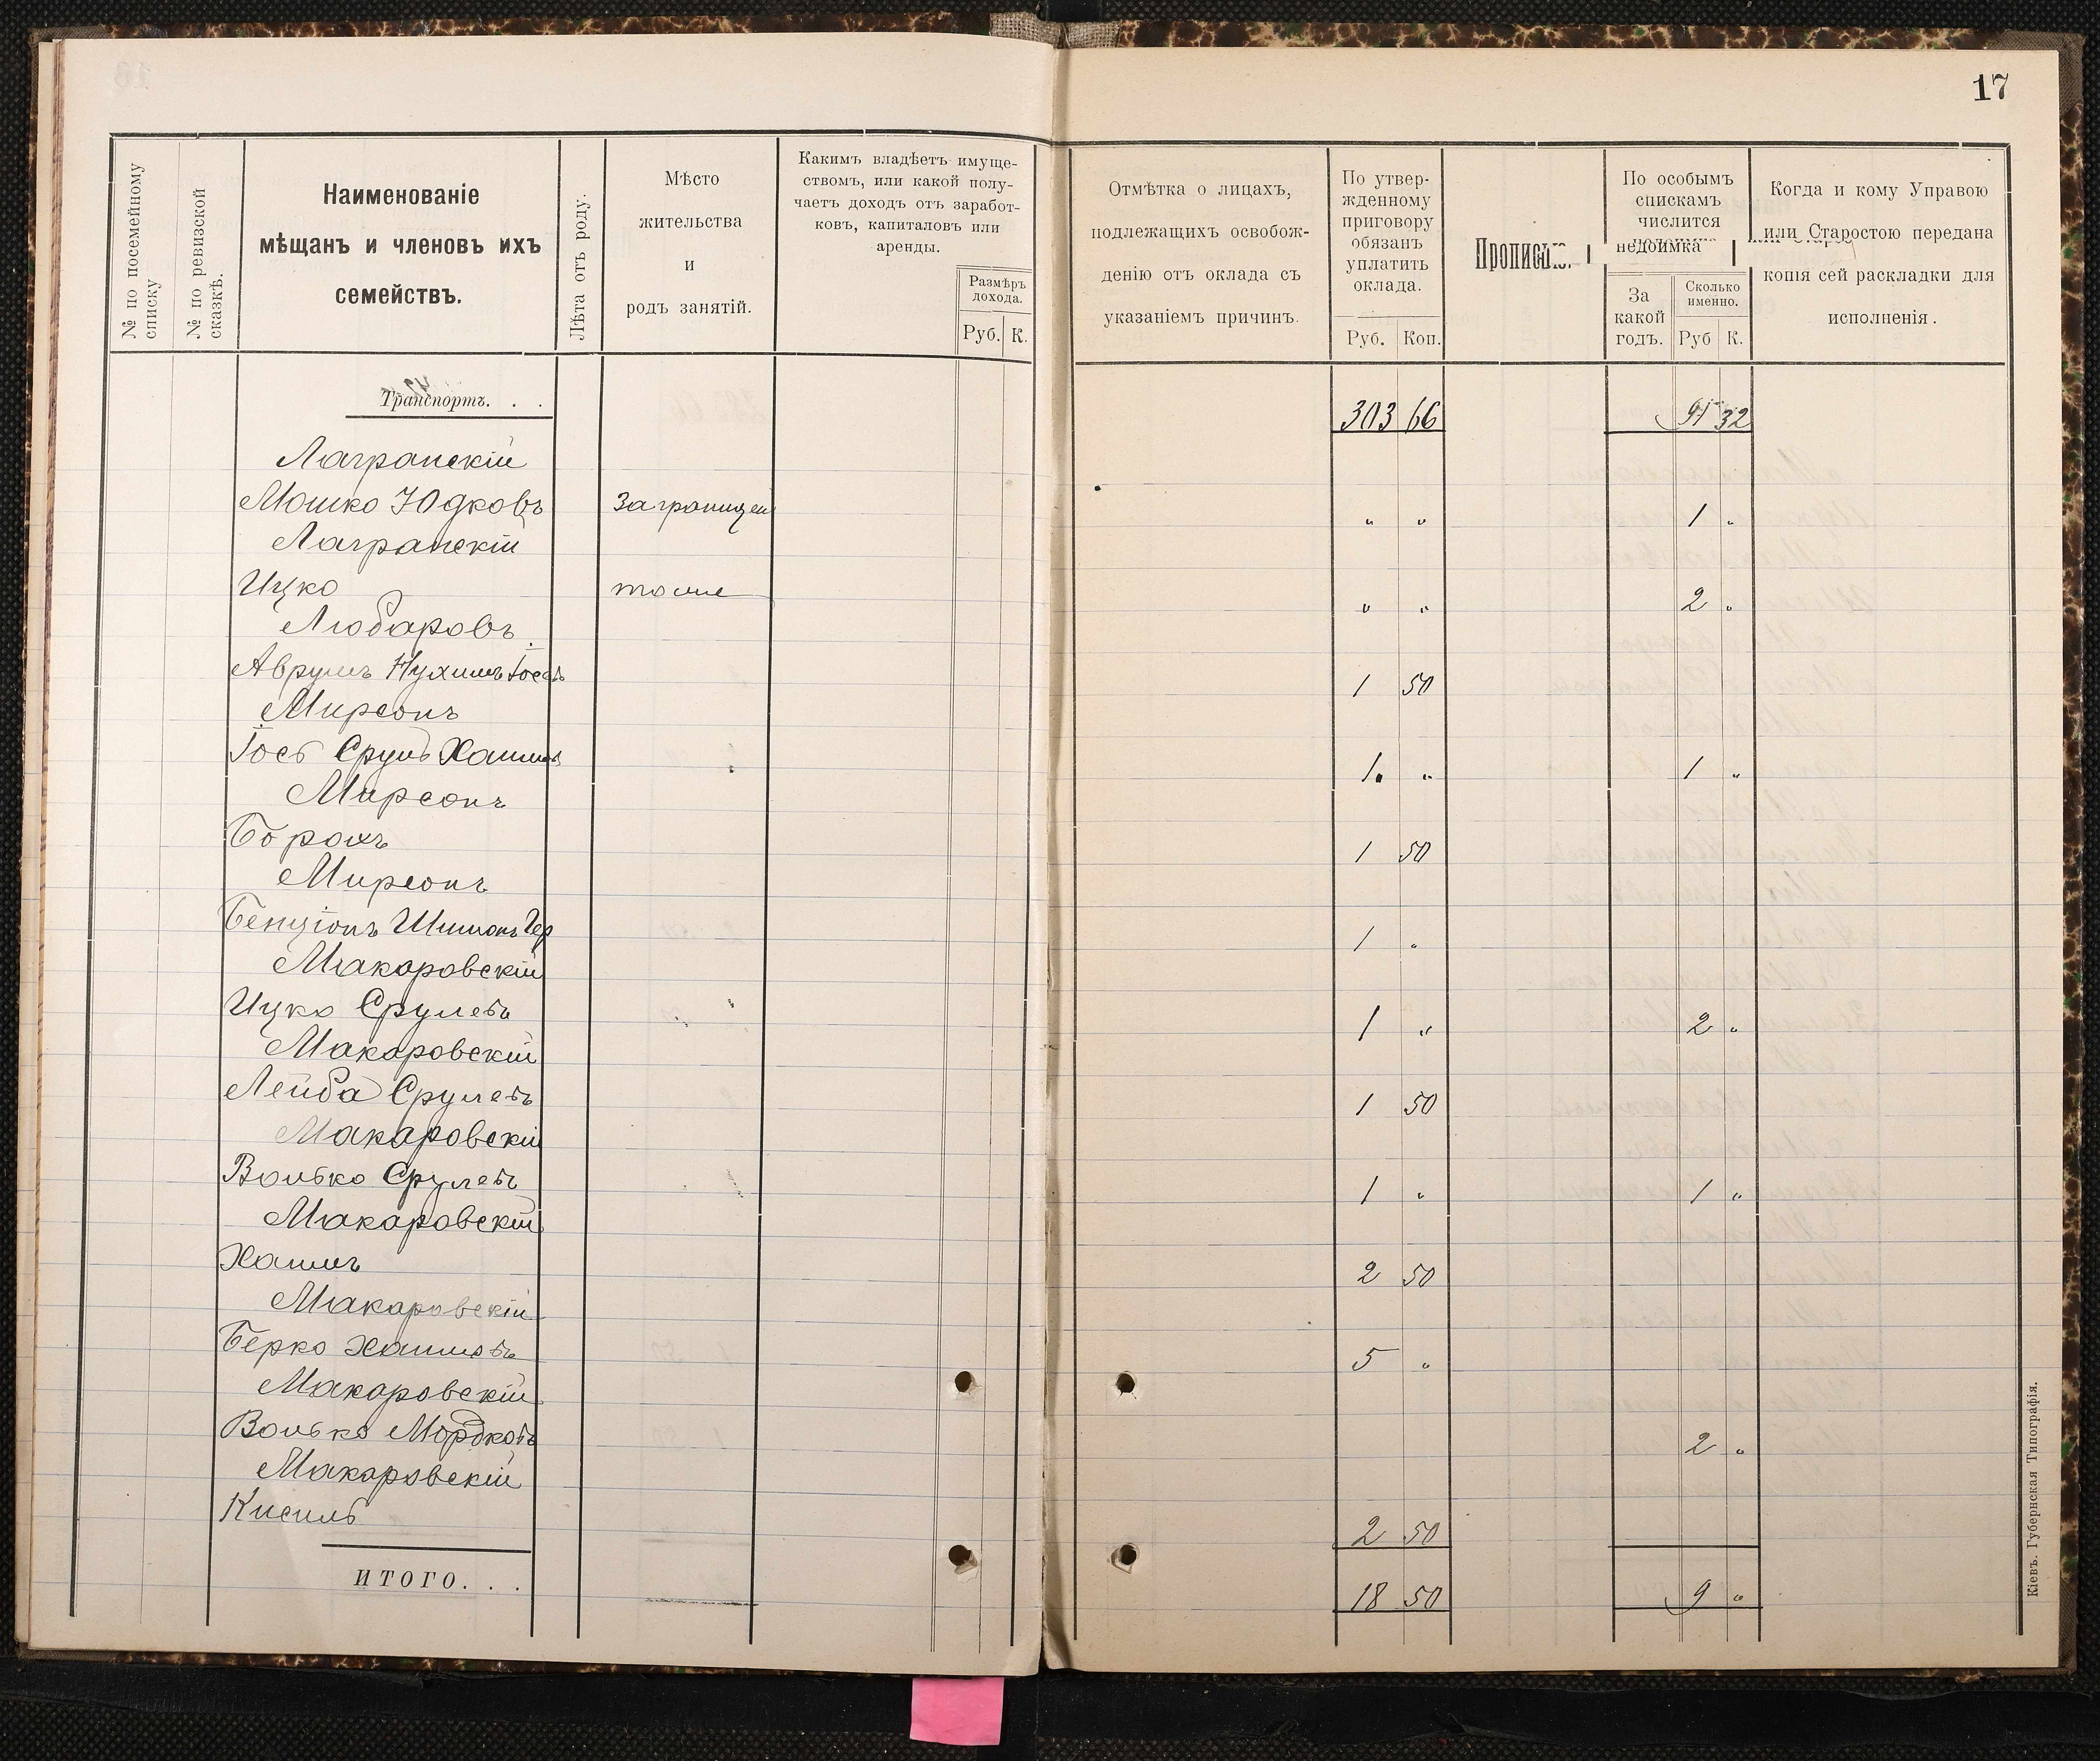 17
№ по посемейному списку
№ по ревизской сказкѣ.
Наименованіе
мѣщанъ и членовъ ихъ
семействъ.
Лѣта отъ роду.
Мѣсто
жительства
и
родъ занятій.
Какимъ владѣетъ имуще-
ствомъ, или какой полу-
чаетъ доходъ отъ заработ-
ковъ, капиталовъ или
аренды.
Размѣръ
дохода.
Руб. К.
Отмѣтка о лицахъ,
подлежащихъ освобож-
денію отъ оклада съ
указаніемъ причинъ.
По утвер-
жденному
приговору
обязанъ
уплатить
оклада.
Руб. Коп.
Прописью.
По особымъ
спискамъ
числится
недоимка
За
какой
годъ.
Сколько
именно.
Руб К.
Когда и кому Управою
или Старостою передана
копія сей раскладки для
исполненія.
Транспортъ. . . 303 66 91 32
Лагранскій
Мошко Юдковъ За границей " " 1 "
Лагранскій
Ицко тоже " " 2 "
Любаровъ
Аврумъ Нухимъ Іосевъ 1 50
Мирсонъ
Іось Сруль Хаимовъ 1 " 1 "
Мирсонъ
Борохъ 1 50
Мирсонъ
Бенціонъ Шимонъ Гер 1 "
Макаровскій
Ицко Срулевъ 1 " 2 "
Макаровскій
Лейба Срулевъ 1 50
Макаровскій
Волько Срулевъ 1 " 1 "
Макаровскій
Хаимъ 2 50
Макаровскій
Берко Хаимовъ 5 "
Макаровскій
Волько Мордковъ 2 "
Макаровскій
Кисиль 2 50
ИТОГО. . . 18 50 9 "
Кіевъ. Губернская Типографія.